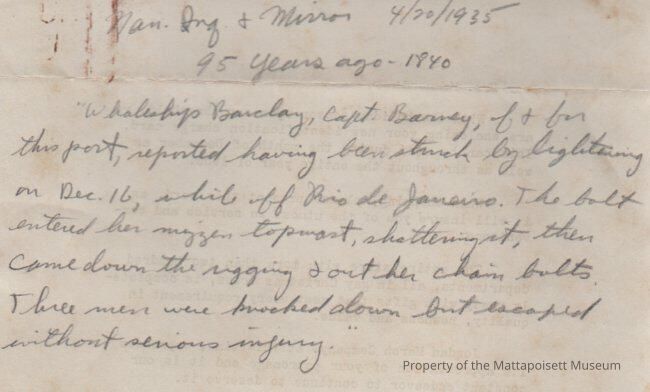 Nan. Inq & Mirror 4/20/1935
95 years ago - 1840
"Whaleship Barclay, Capt Barney, of & for
this port, reported having been struck by lightening
on Dec. 16, while off Rio de Janeiro. The bolt
entered her mizzen topmast, shattering it, then
came down the rigging & out her chain bolts.
Three men were knocked down but escaped
without serious injury."
Property of the Mattapoisett Museum